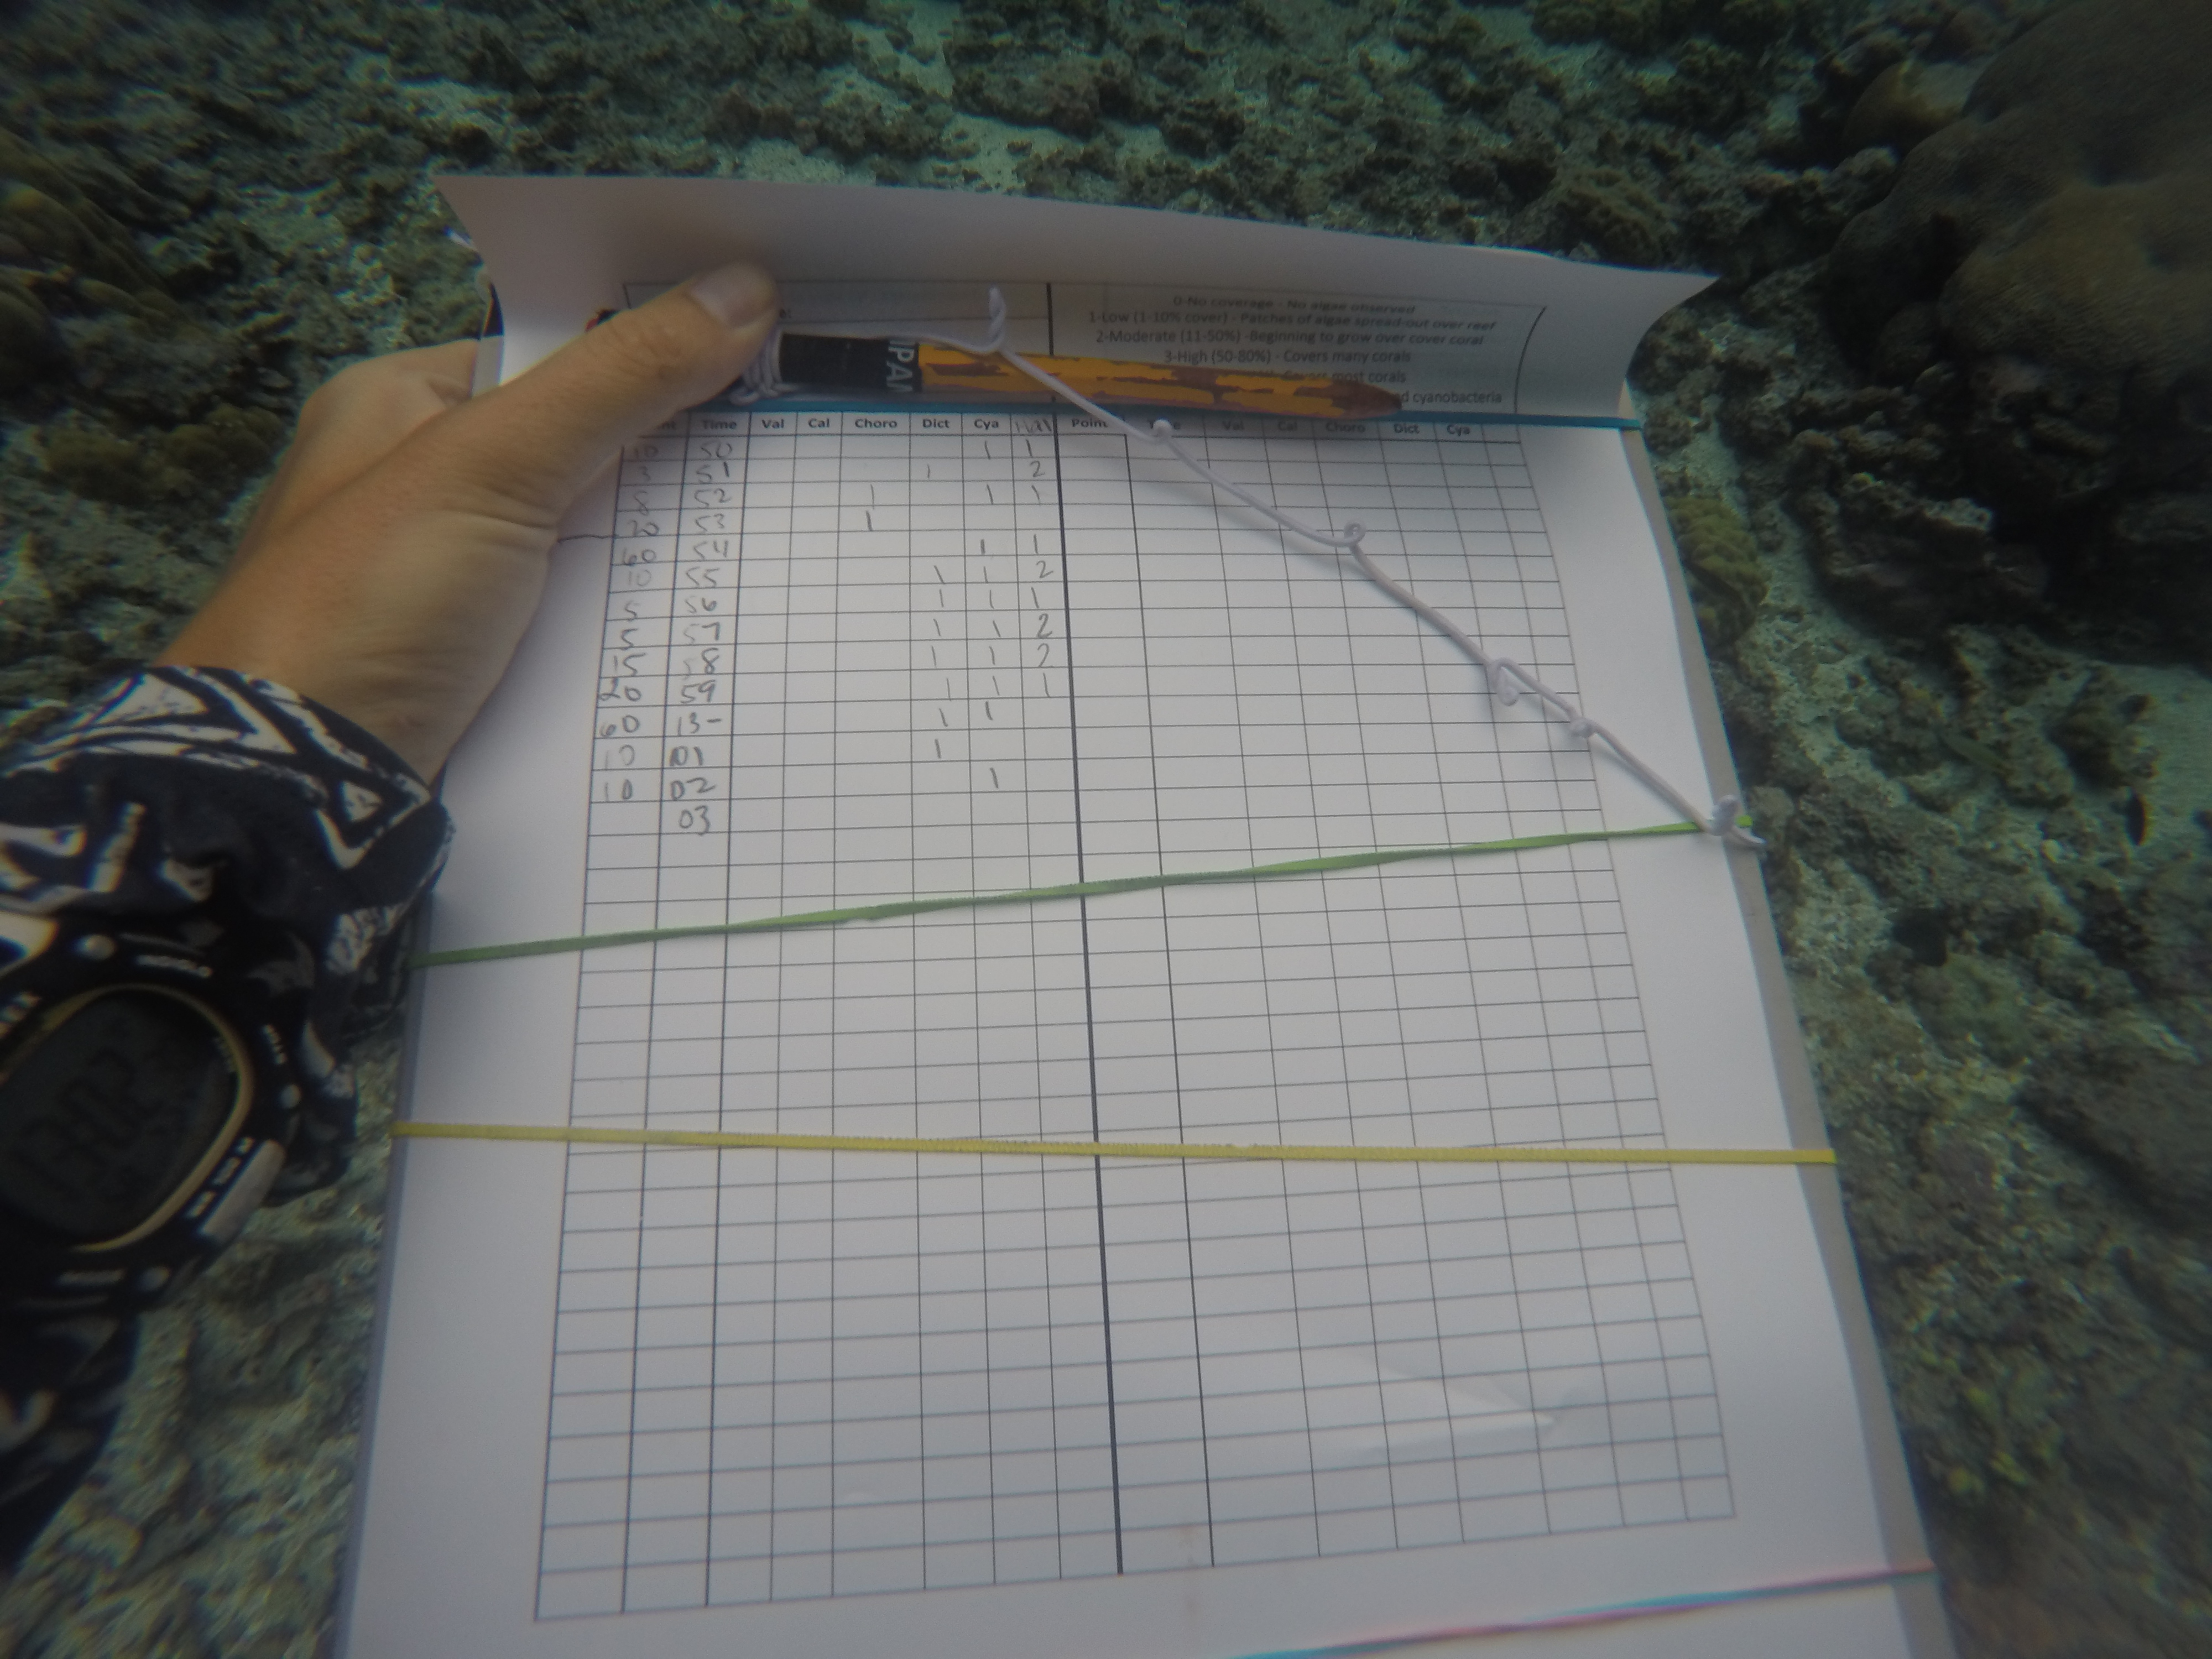 0-No coverage - No algae observed
1-Low (1-10% cover) - Patches of algae spread-out over reef
2-Moderate (11-50%) -Beginning to grow over cover coral
3-High (50-80%) - Covers many corals
most corals
cyanobacteria
Time Val Cal Choro Dict Cya Hal Point Val Cal Choro Dict Cya
10 50 1 1
3 51 1 2
8 52 1 1 1
20 53 1
60 54 1 1
10 55 1 1 2
5 56 1 1 1
5 57 1 1 2
15 58 1 1 2
20 59 1 1 1
60 13- 1 1
10 01 1
10 02 1
03